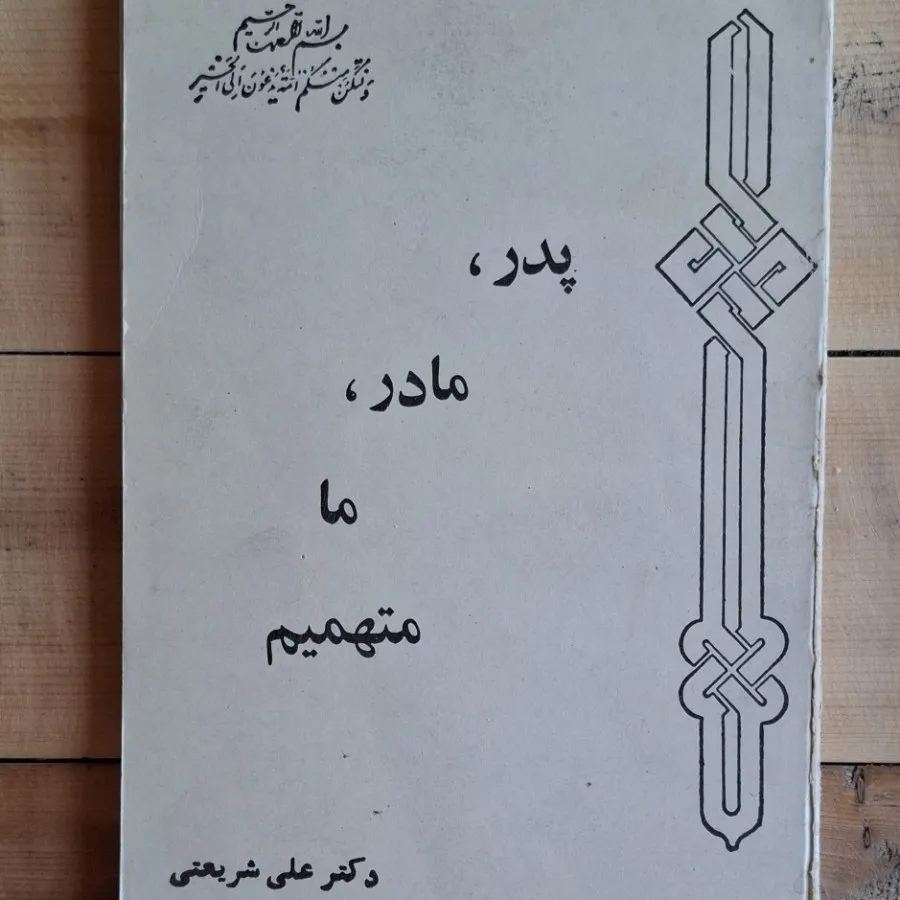 بسم الله الرحمن الرحیم
ولتکن منکم امة یدعون الی الخیر
پدر،
مادر،
ما
متهمیم
دکتر علی شریعتی